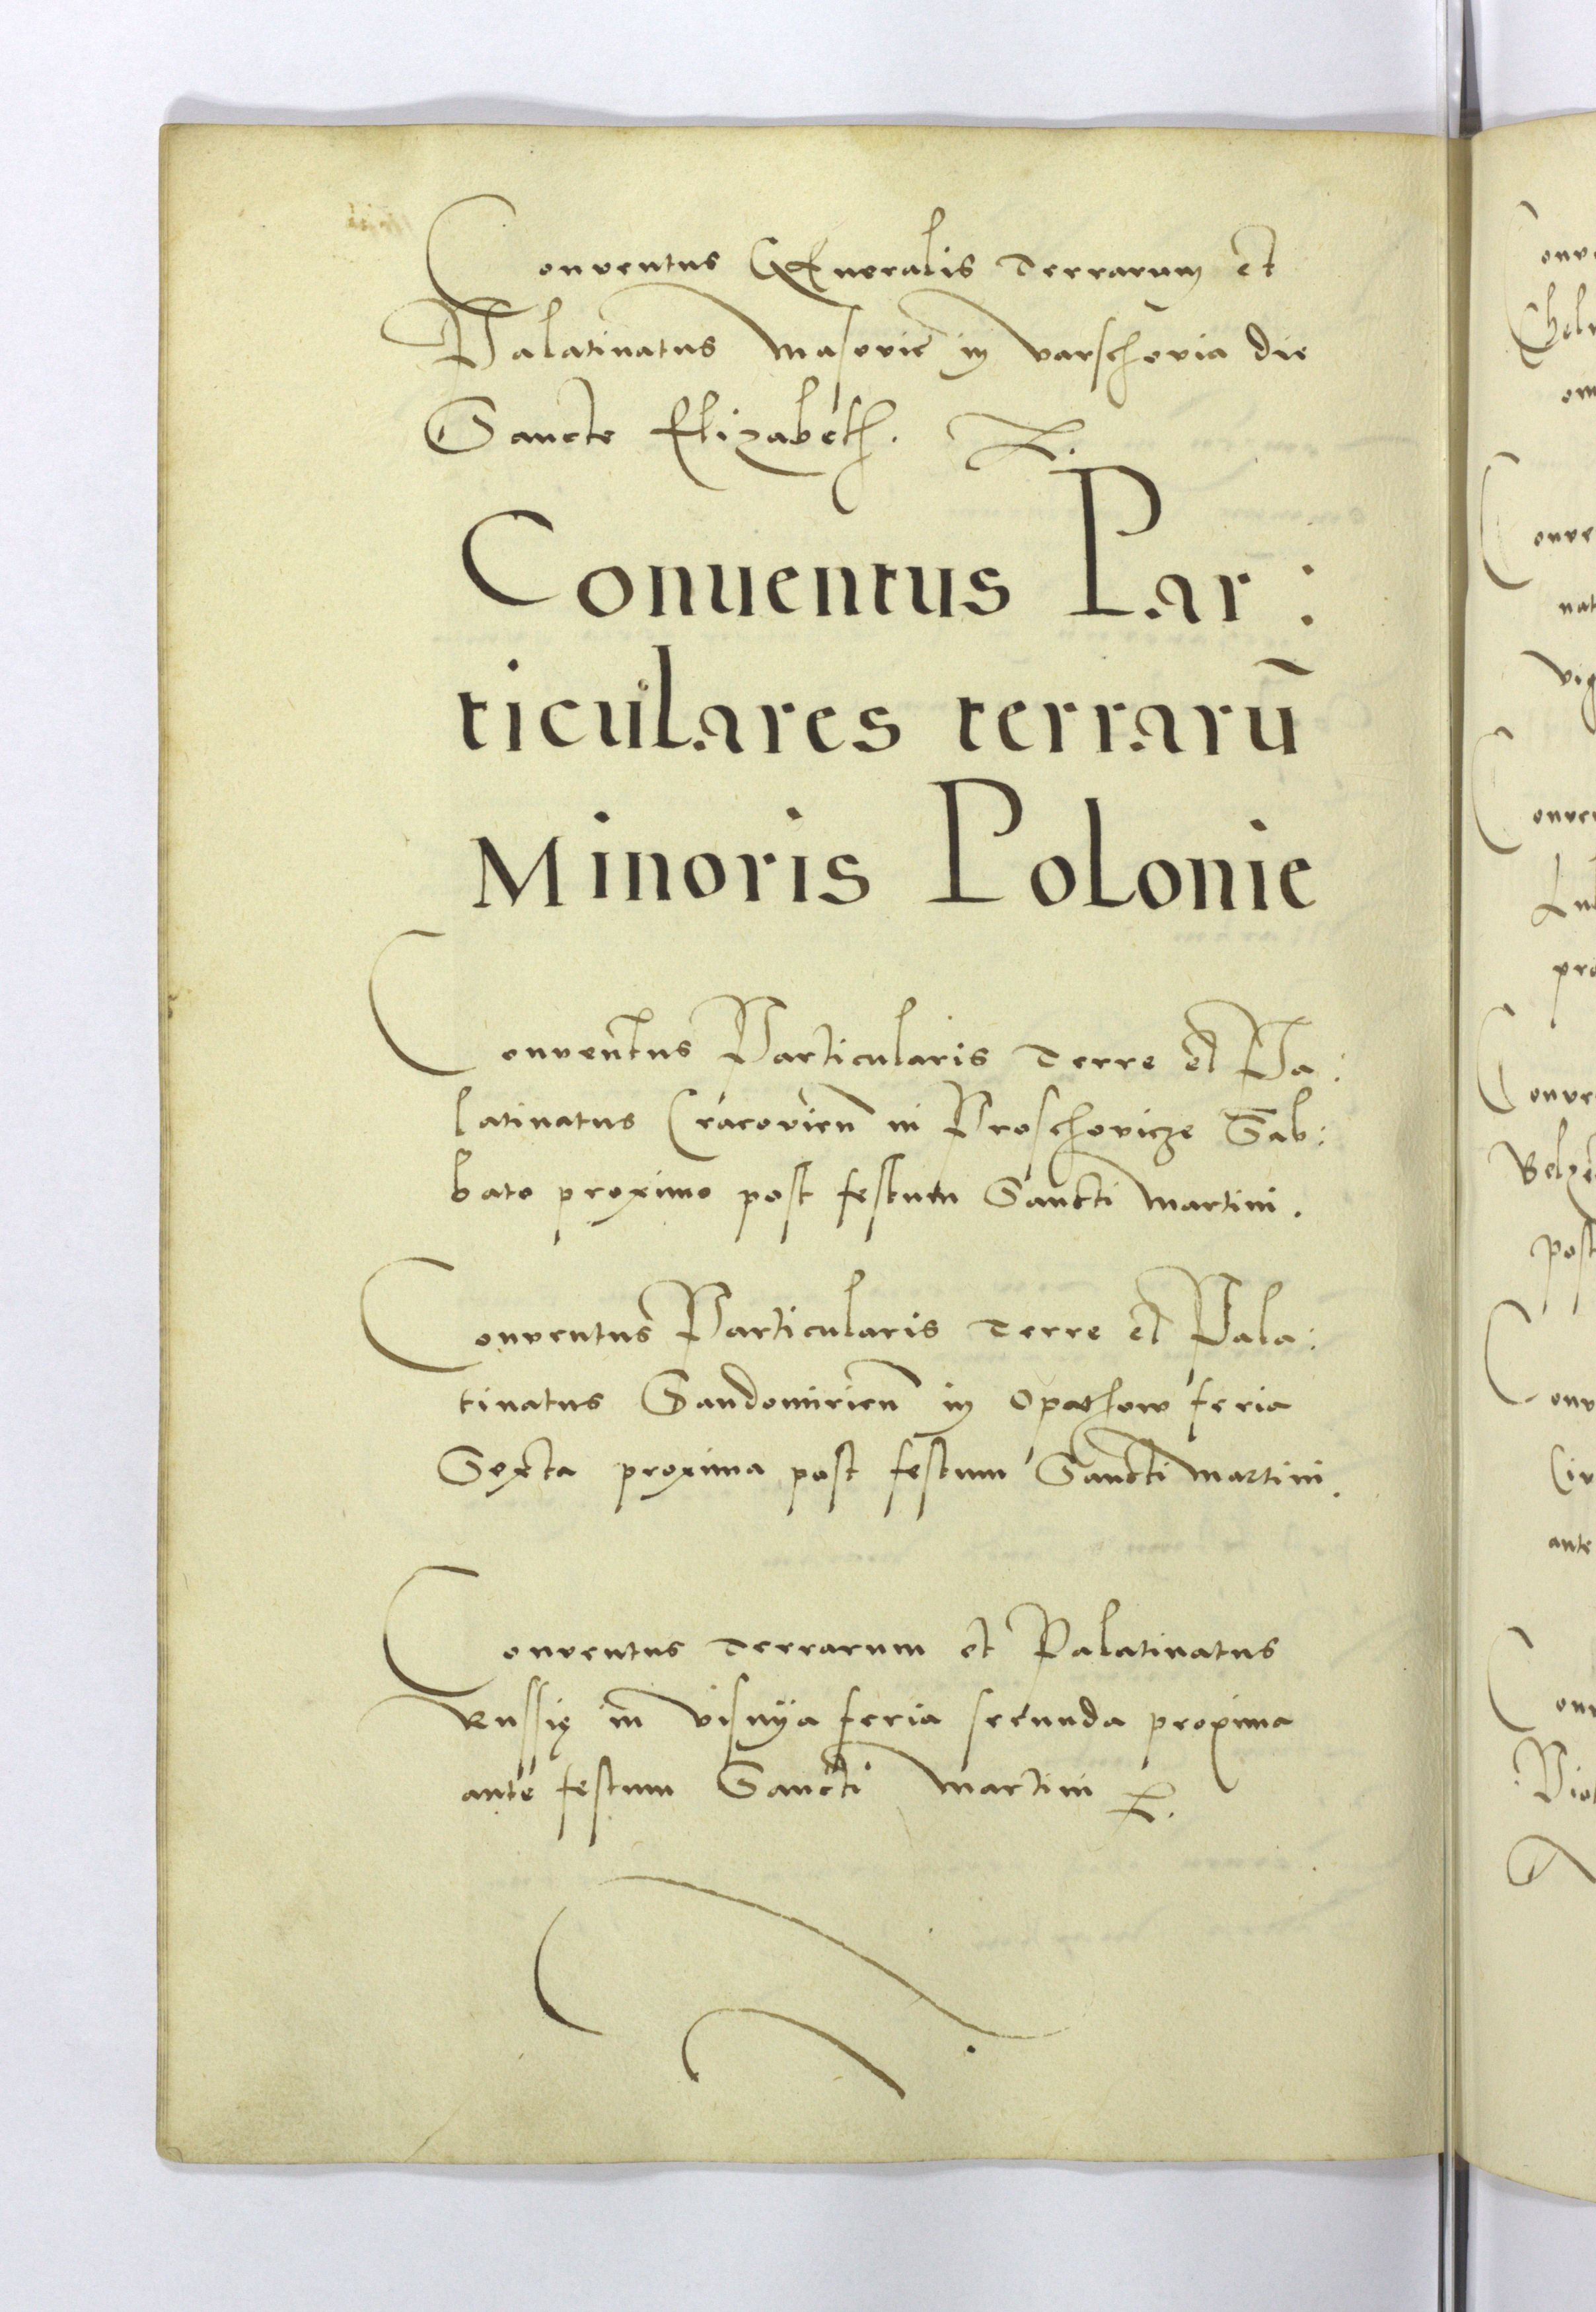 Conventus GEneralis Terrarum et
Palatinatus Masovie in Varschovia die
Sancte Elizabeth.
Conuentus Par:
ticulares terrarū
Minoris Polonie
Conventus Particularis Terre et Pa:
latinatus Cracovien in Proschovicze Sab:
bato proximo post festum Sancti Martini.
Conventus Particularis Terre et Pala:
tinatus Sandomirien in Opathow feria
Sexta proxima post festum Sancti Martini.
Conventus Terrarum et Palatinatus
Russię in Visnÿa feria secunda proxima
ante festum Sancti Martini